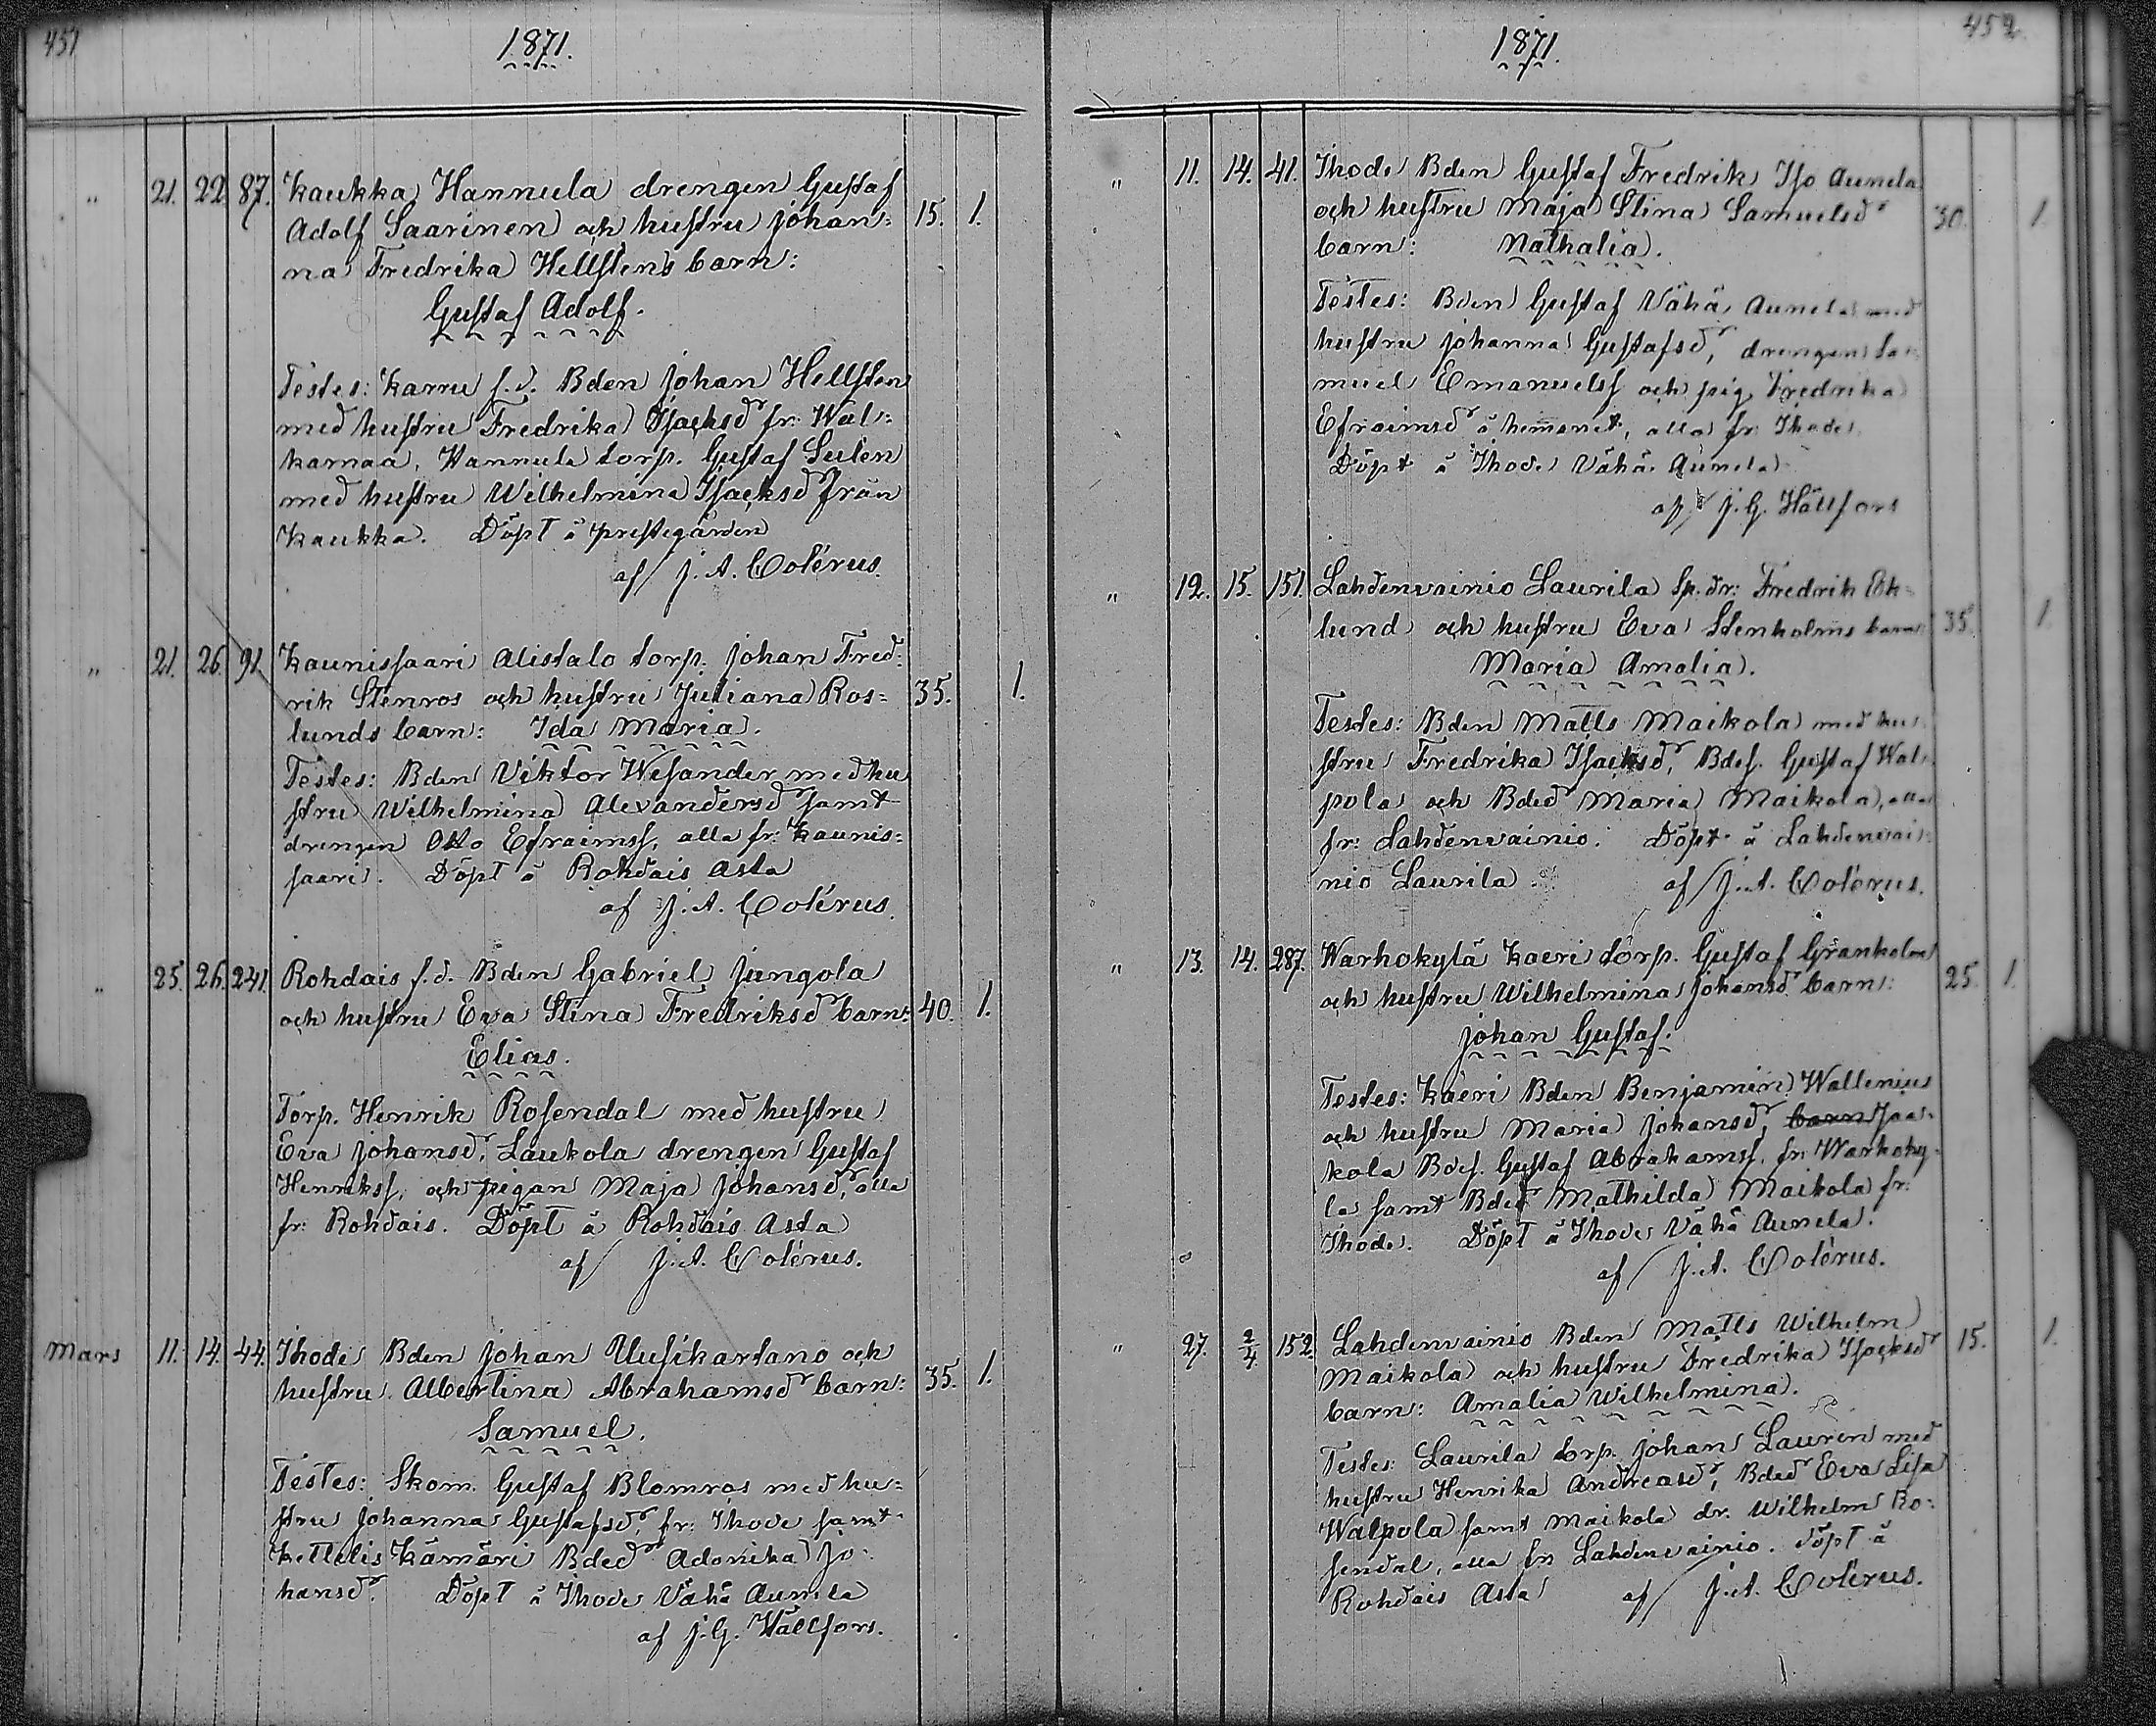 451
1871.
" 21. 22. 87. Kaukka Hannula drengen Gustaf
Adolf Saarinen och hustru Johan= 15. 1.
na Fredrika Hellstens barn:
Gustaf Adolf.
Testes: Karru f.d. Bden Johan Hellsten
med hustru Fredrika Isacksdr fr: Wal=
karnaa, Hannula torp. Gustaf Sulen
med hustru Wilhelmina Isacksdr från
Kaukka. Döpt å prestegården
af J. A. Colérus.
" 21. 26. 91. Kaunissaari Alistalo torp. Johan Fred=
rik Stenros och hustru Juliana Ros= 35. 1.
lunds barn: Ida Maria.
Testes: Bden Viktor Wesander med hu
stru Wilhelmina Alexandersdr samt
drengen Otto Efraimss, alla fr: Kaunis=
saari. Döpt å Rohdais Asta
af J. A. Colérus.
" 25. 26. 241. Rohdais f.d. Bden Gabriel Jungola
och hustru Eva Stina Fredriksdr barn: 40. 1.
Elias.
Torp. Henrik Rosendal med hustru
Eva Johansdr, Laukola drengen Gustaf
Henrikss, och pigan Maja Johansdr, alla
fr: Rohdais. Döpt å Rohdais Asta
af J. A. Colérus.
Mars 11. 14. 44. Ihode Bden Johan Uusikartano och
hustru Albertina Abrahamsdr barn: 35. 1.
Samuel.
Testes: Skom. Gustaf Blomros med hu=
stru Johanna Gustafsdr, fr: Ihode samt
Kettelis Kämäri Bded Adonika Jo=
hansdr. Döpt å Ihode Vähä Aunela
af J. G. Hällfors.
452
1871.
" 11. 14. 41. Ihode Bden Gustaf Fredrik Iso Aunela
och hustru Maja Stina Samuelsdr 30. 1.
barn: Nathalia.
Testes: Bden Gustaf Vähä Aunela med
hustru Johanna Gustafsdr, drengen Sa=
muel Emanuelss och pig. Fredrika
Efraimsdr å hemmanet, alla fr: Ihode.
Döpt å Ihode Vähä Aunela
af J. G. Hällfors
" 12. 15. 151. Lahdenvainio Laurila Sp. dr: Fredrik Ek=
lund och hustru Eva Stenholms barn 35. 1.
Maria Amalia.
Testes: Bden Matts Maikola med hu
stru Fredrika Isacksdr, Bdes. Gustaf Wal=
pola och Bded Maria Maikola, alla
fr: Lahdenvainio. Döpt å Lahdenvai=
nio Laurila. af J. A. Colérus.
" 13. 14. 287. Warhokylä Kaeri torp. Gustaf Granholm
och hustru Wilhelmina Johansdr barn: 25. 1.
Johan Gustaf.
Testes: Kaeri Bden Benjamin Wallenius
och hustru Maria Johansdr, barn Jaa=
kola Bdes. Gustaf Abrahamss. fr: Warhoky=
la samt Bded Mathilda Maikola fr:
Ihode. Döpt å Ihode Vähä Aunela.
af J. A. Colérus.
" 27. 2/4 152. Lahdenvainio Bden Matts Wilhelm 15. 1.
Maikola och hustru Fredrika Isacksdr
barn: Amalia Wilhelmina.
Testes: Laurila torp. Johan Lauren med
hustru Henrika Andreasdr, Bded Eva Lisa
Walpola samt Maikola dr. Wilhelm Ro=
sendal, alla fr: Lahdenvainio. Döpt å
Rohdais Asta af J. A. Colérus.